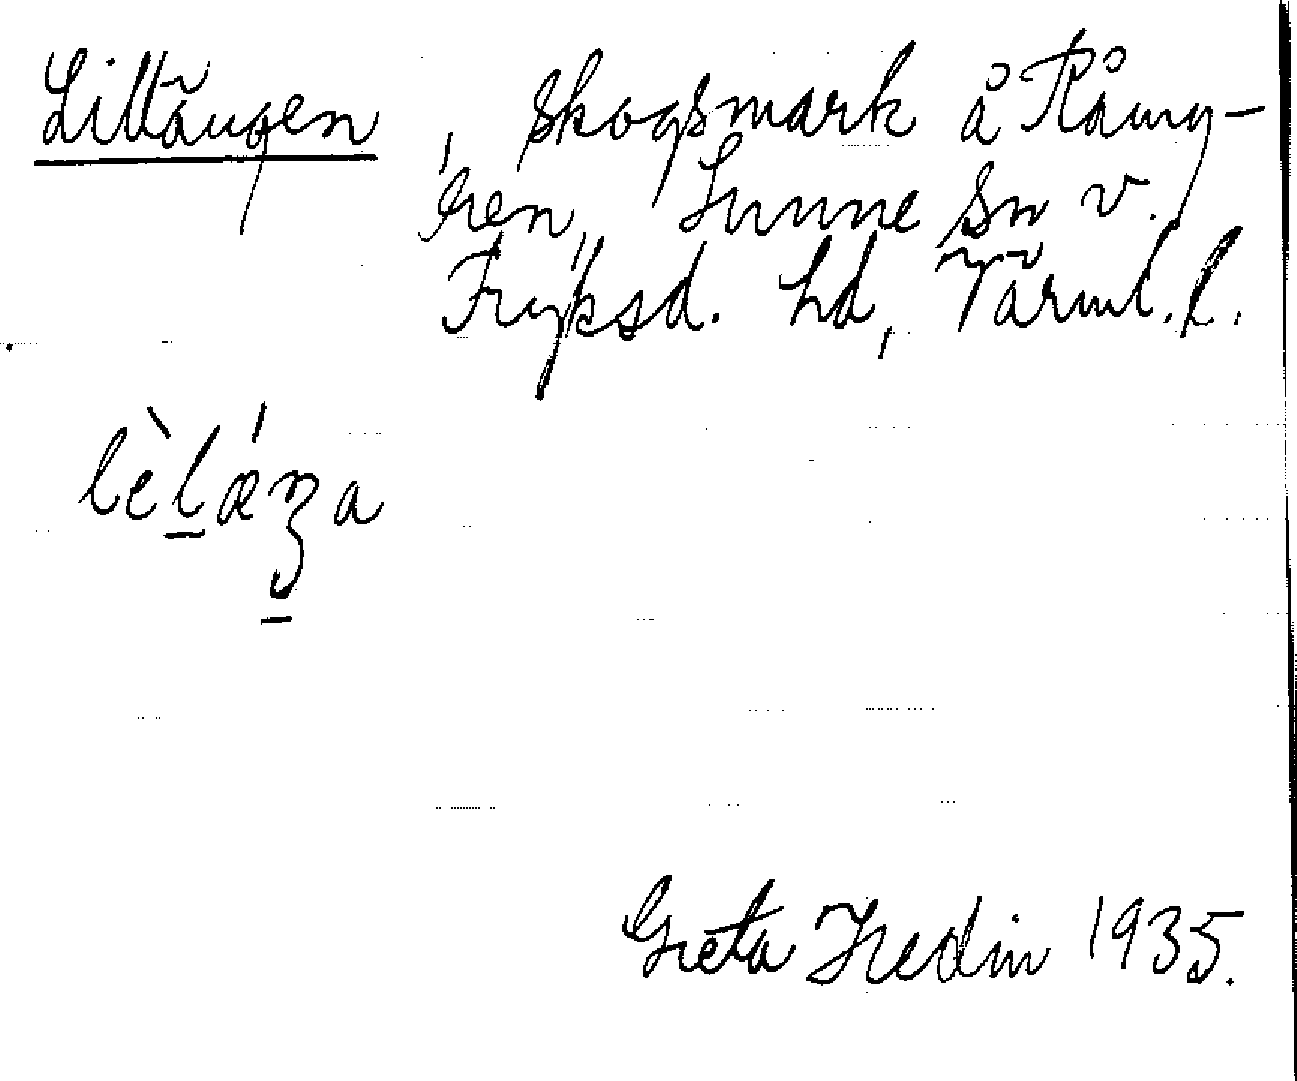 Lillängen, skogsmark å Råmy-
ren, Sunne sn v.
Fryksd. hd, Värml. l.
lèl̲ǽŋ̲a
Greta Hedin 1935.